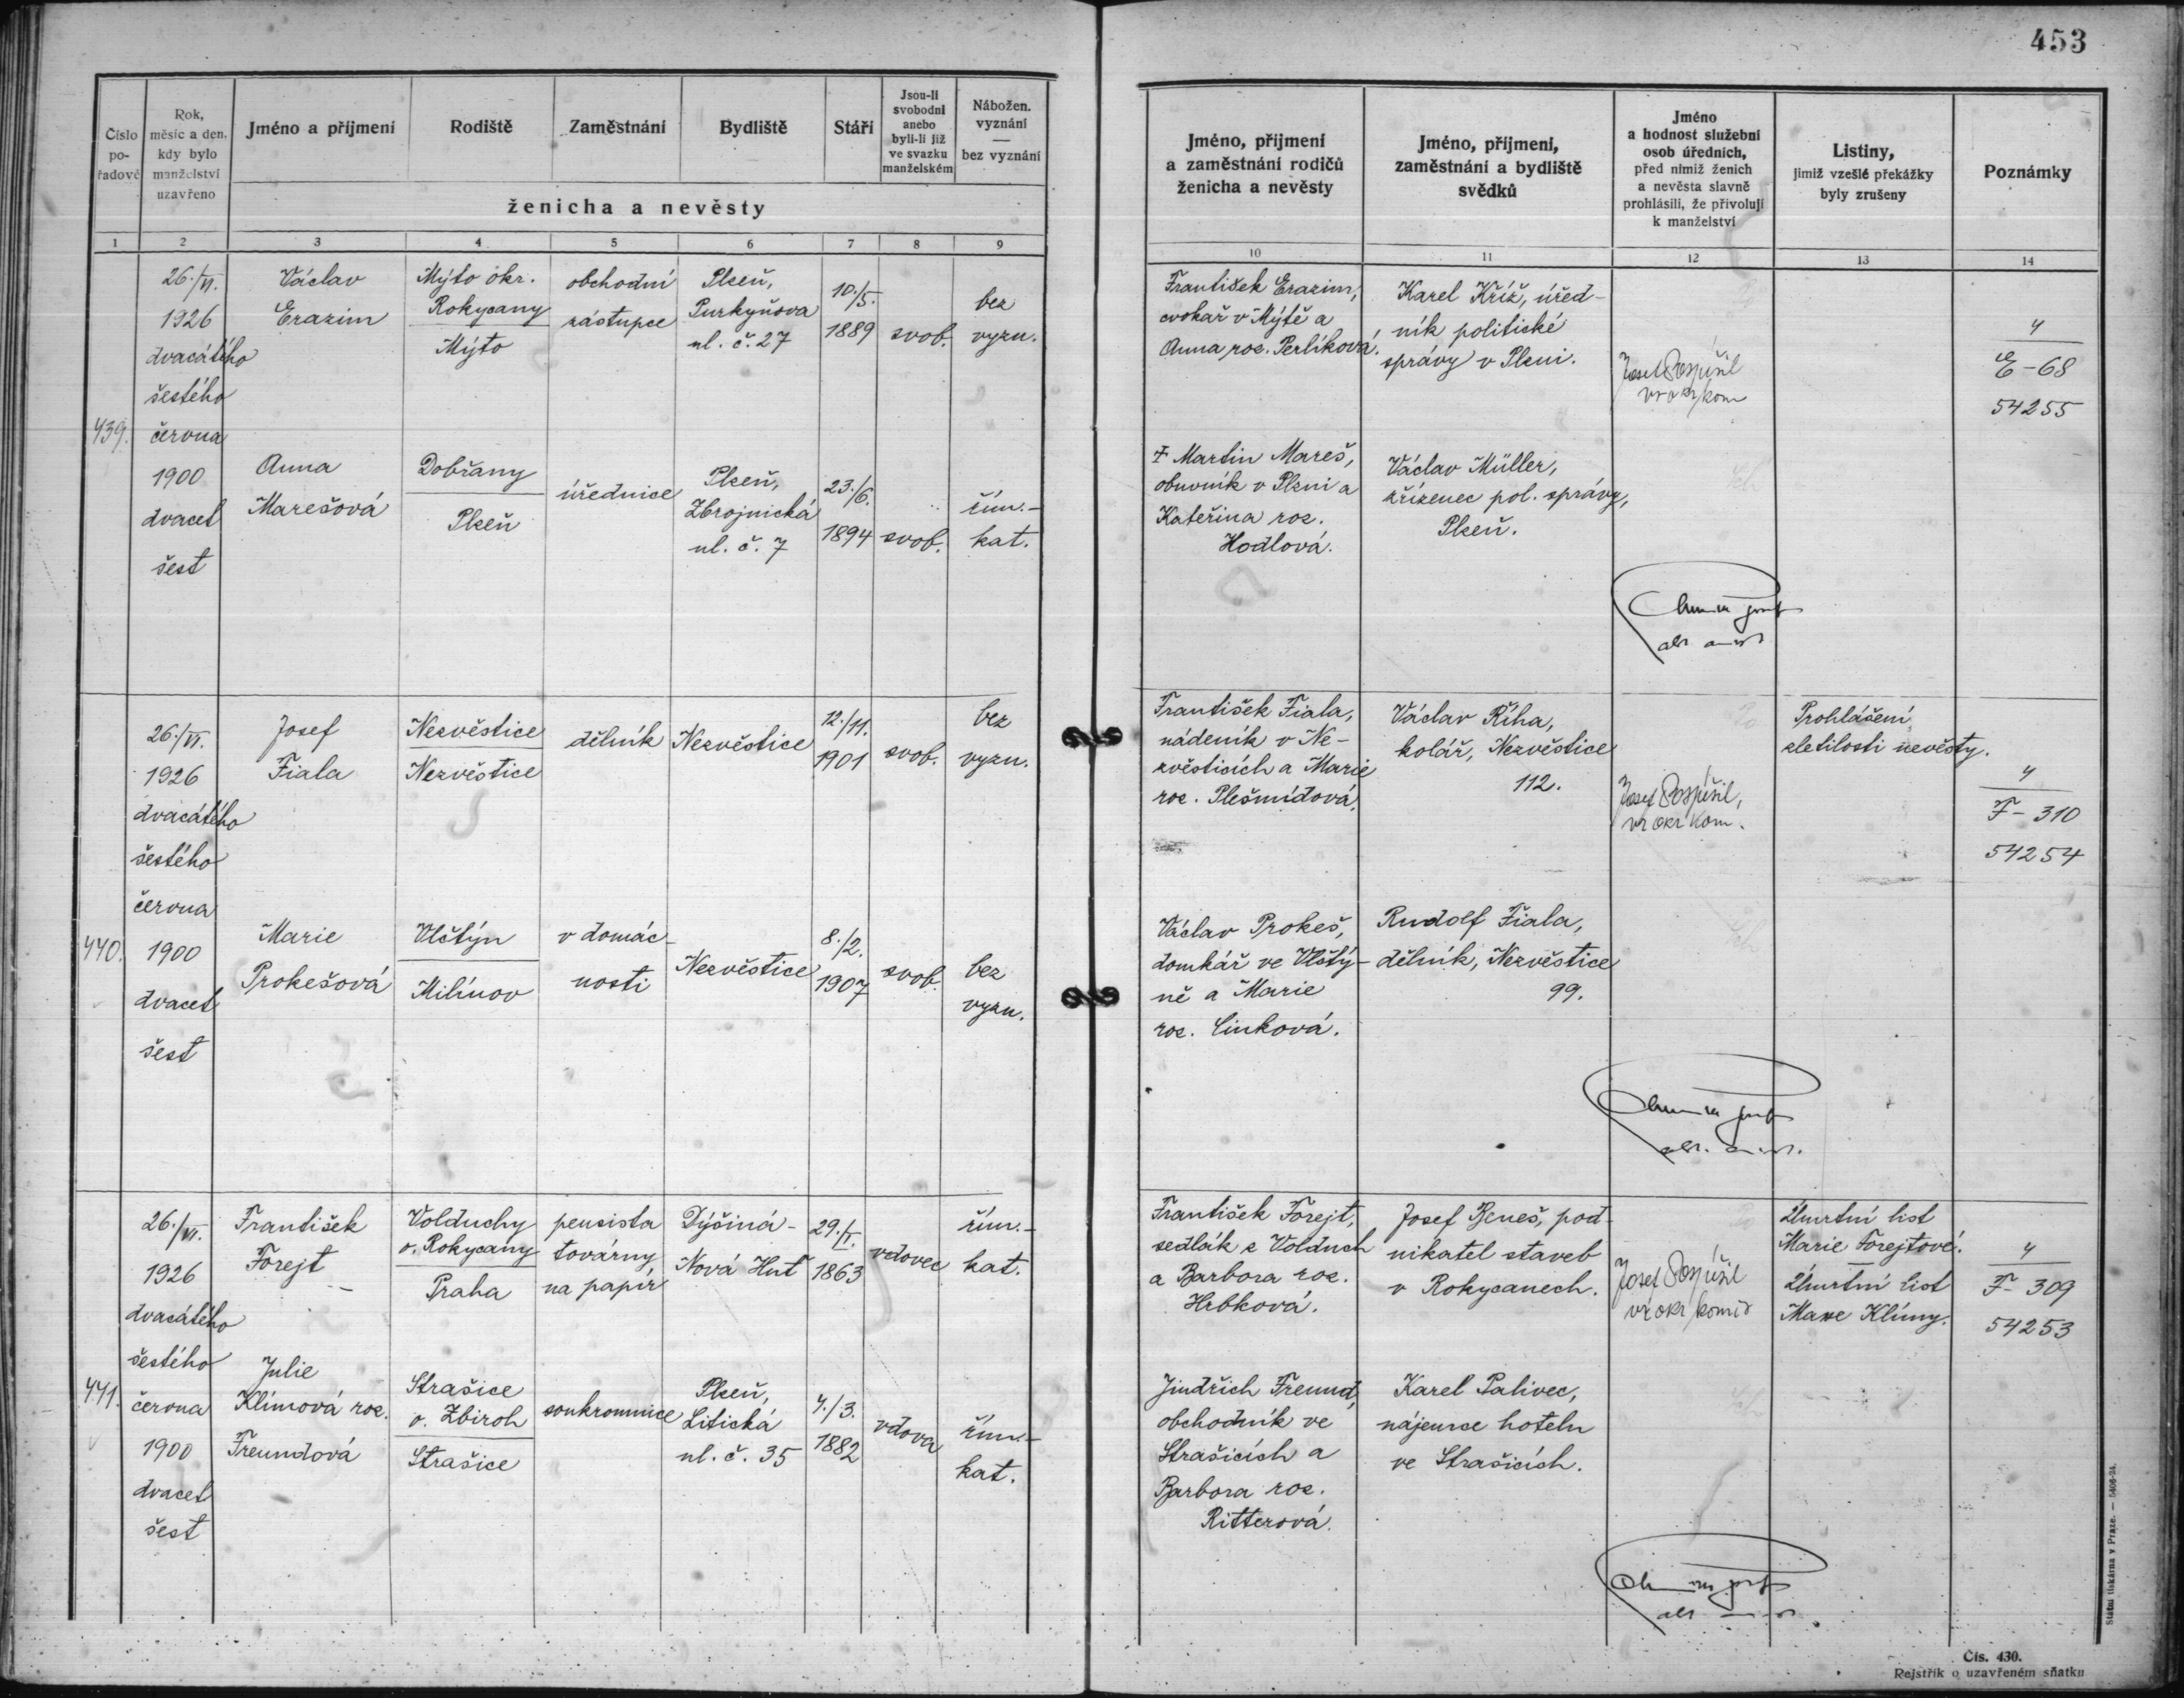 453
Číslo
po-
řadové
Rok,
měsíc a den,
kdy bylo
manželství
uzavřeno
Jméno a příjmení
Rodiště
Zaměstnání
Bydliště
Stáří
Jsou-li
svobodni
anebo
byli-li již
ve svazku
manželském
Nábožen.
vyznání
—
bez vyznání
ženicha a nevěsty
1 2 3 4 5 6 7 8 9
Jméno, příjmení
a zaměstnání rodičů
ženicha a nevěsty
Jméno, příjmení,
zaměstnání a bydliště
svědků
Jméno
a hodnost služební
osob úředních,
před nimiž ženich
a nevěsta slavně
prohlásili, že přivolují
k manželství
Listiny,
jimiž vzešlé překážky
byly zrušeny
Poznámky
10 11 12 13 14
439.
26./VI.
1926
dvacátého
šestého
června
1900
dvacet
šest
Václav
Erazim
Mýto okr.
Rokycany
Mýto
obchodní
zástupce
Plzeň,
Purkyňova
ul. č. 27
10./5.
1889
svob.
bez
vyzn.
František Erazim,
cvokař v Mýtě a
Anna roz. Perlíková.
Karel Kříž, úřed-
ník politické
správy v Plzni.
Josef Pospíšil
vr okr kom
4
E-68
54255
Anna
Marešová
Dobřany
Plzeň
úřednice
Plzeň,
Zbrojnická
ul. č. 7
23./6.
1894
svob.
řím.-
kat.
Martin Mareš,
obuvník v Plzni a
Kateřina roz.
Hodlová.
Václav Müller,
zřízenec pol. správy,
Plzeň.
440.
26./VI.
1926
dvacátého
šestého
června
1900
dvacet
šest
Josef
Fiala
Nezvěstice
Nezvěstice
dělník
Nezvěstice
12./11.
1901
svob.
bez
vyzn.
František Fiala,
nádeník v Ne-
zvěsticích a Marie
roz. Plešmídová.
Václav Říha,
kolář, Nezvěstice
112.
Josef Pospíšil,
vr okr kom.
Prohlášení
zletilosti nevěsty.
4
F-310
54254
Marie
Prokešová
Vlčtýn
Milínov
v domác-
nosti
Nezvěstice
8./2.
1907
svob.
bez
vyzn.
Václav Prokeš,
domkář ve Vlčtý-
ně a Marie
roz. Cinková.
Rudolf Fiala,
dělník, Nezvěstice
99.
441.
26./VI.
1926
dvacátého
šestého
června
1900
dvacet
šest
František
Forejt
Volduchy
o. Rokycany
Praha
pensista
továrny
na papír
Dýšiná-
Nová Huť
29./I.
1863
vdovec
řím.-
kat.
František Forejt,
sedlák z Volduch
a Barbora roz.
Hrbková.
Josef Beneš, pod-
nikatel staveb
v Rokycanech.
Josef Pospíšil
vr okr komis
Úmrtní list
Marie Forejtové.
Úmrtní list
Klímy.
4
F-309
54253
Julie
Klímová roz.
Freundová
Strašice
o. Zbiroh
Strašice
soukromnice
Plzeň,
Litická
ul. č. 35
4./3.
1882
vdova
řím.-
kat.
Jindřich Freund,
obchodník ve
Strašicích a
Barbora roz.
Ritterová.
Karel Palivec,
nájemce hotelu
ve Strašicích.
Státní tiskárna v Praze. — 5406-24.
Čís. 430.
Rejstřík o uzavřeném sňatku